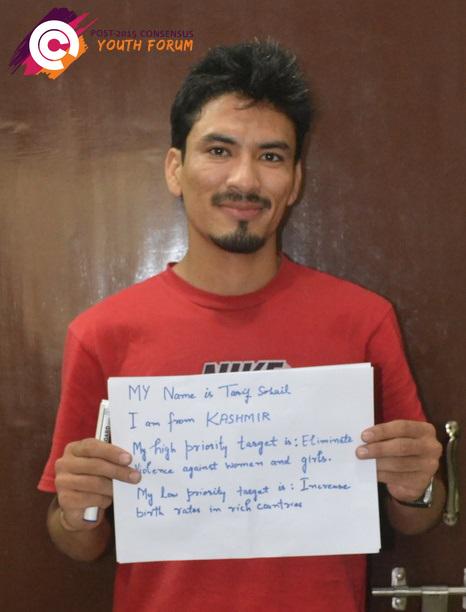 POST-2015 CONSENSUS
YOUTH FORUM
NIKE
MY Name is Tarif Sohail
I am from KASHMIR
My high priority target is: Eliminate
Violence against women and girls.
My low priority target is: Increase
birth rates in rich contries